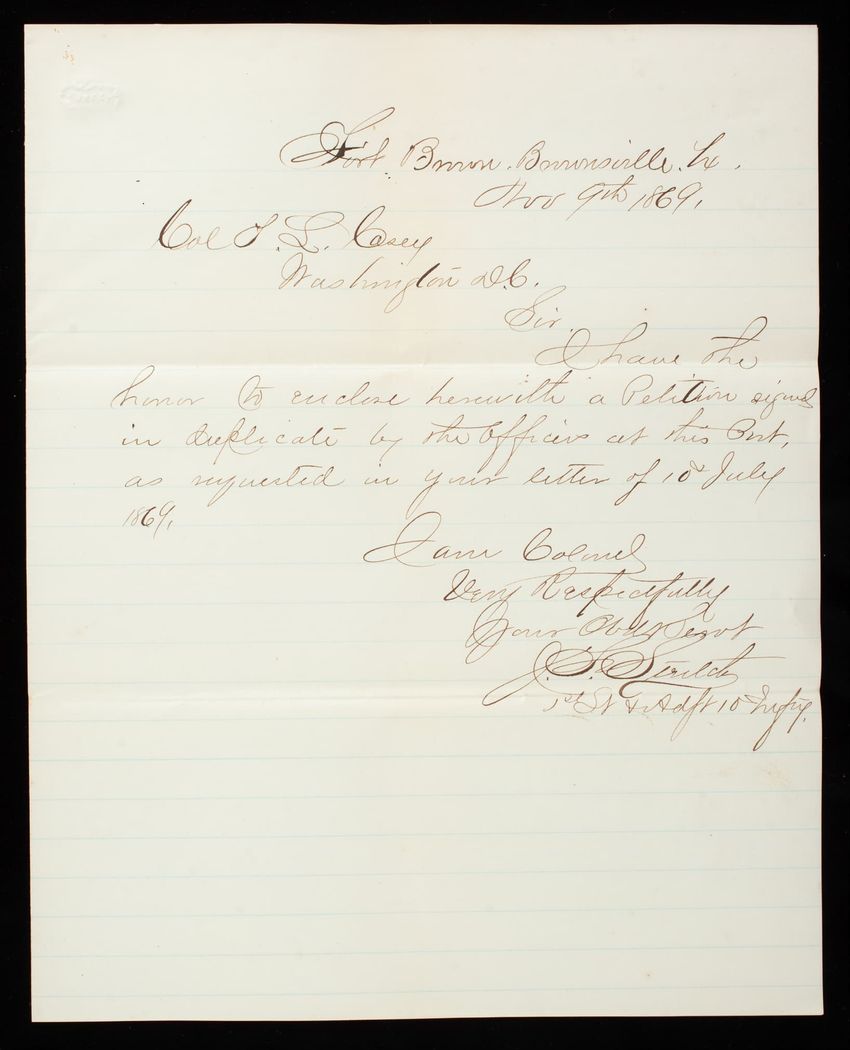 Fort Brown. Brownsville. Tx.
Nov 9th 1869.
Col T. L. Casey
Washington D.C.
Sir.
I have the
honor to enclose herewith a Petition signed
in duplicate by the Officers at this Post,
as requested in your letter of 10th July
1869.
I am Colonel
Very Respectfully
Your Obdt Servt
J. F.
1st Lt & Adjt 10 Infty.